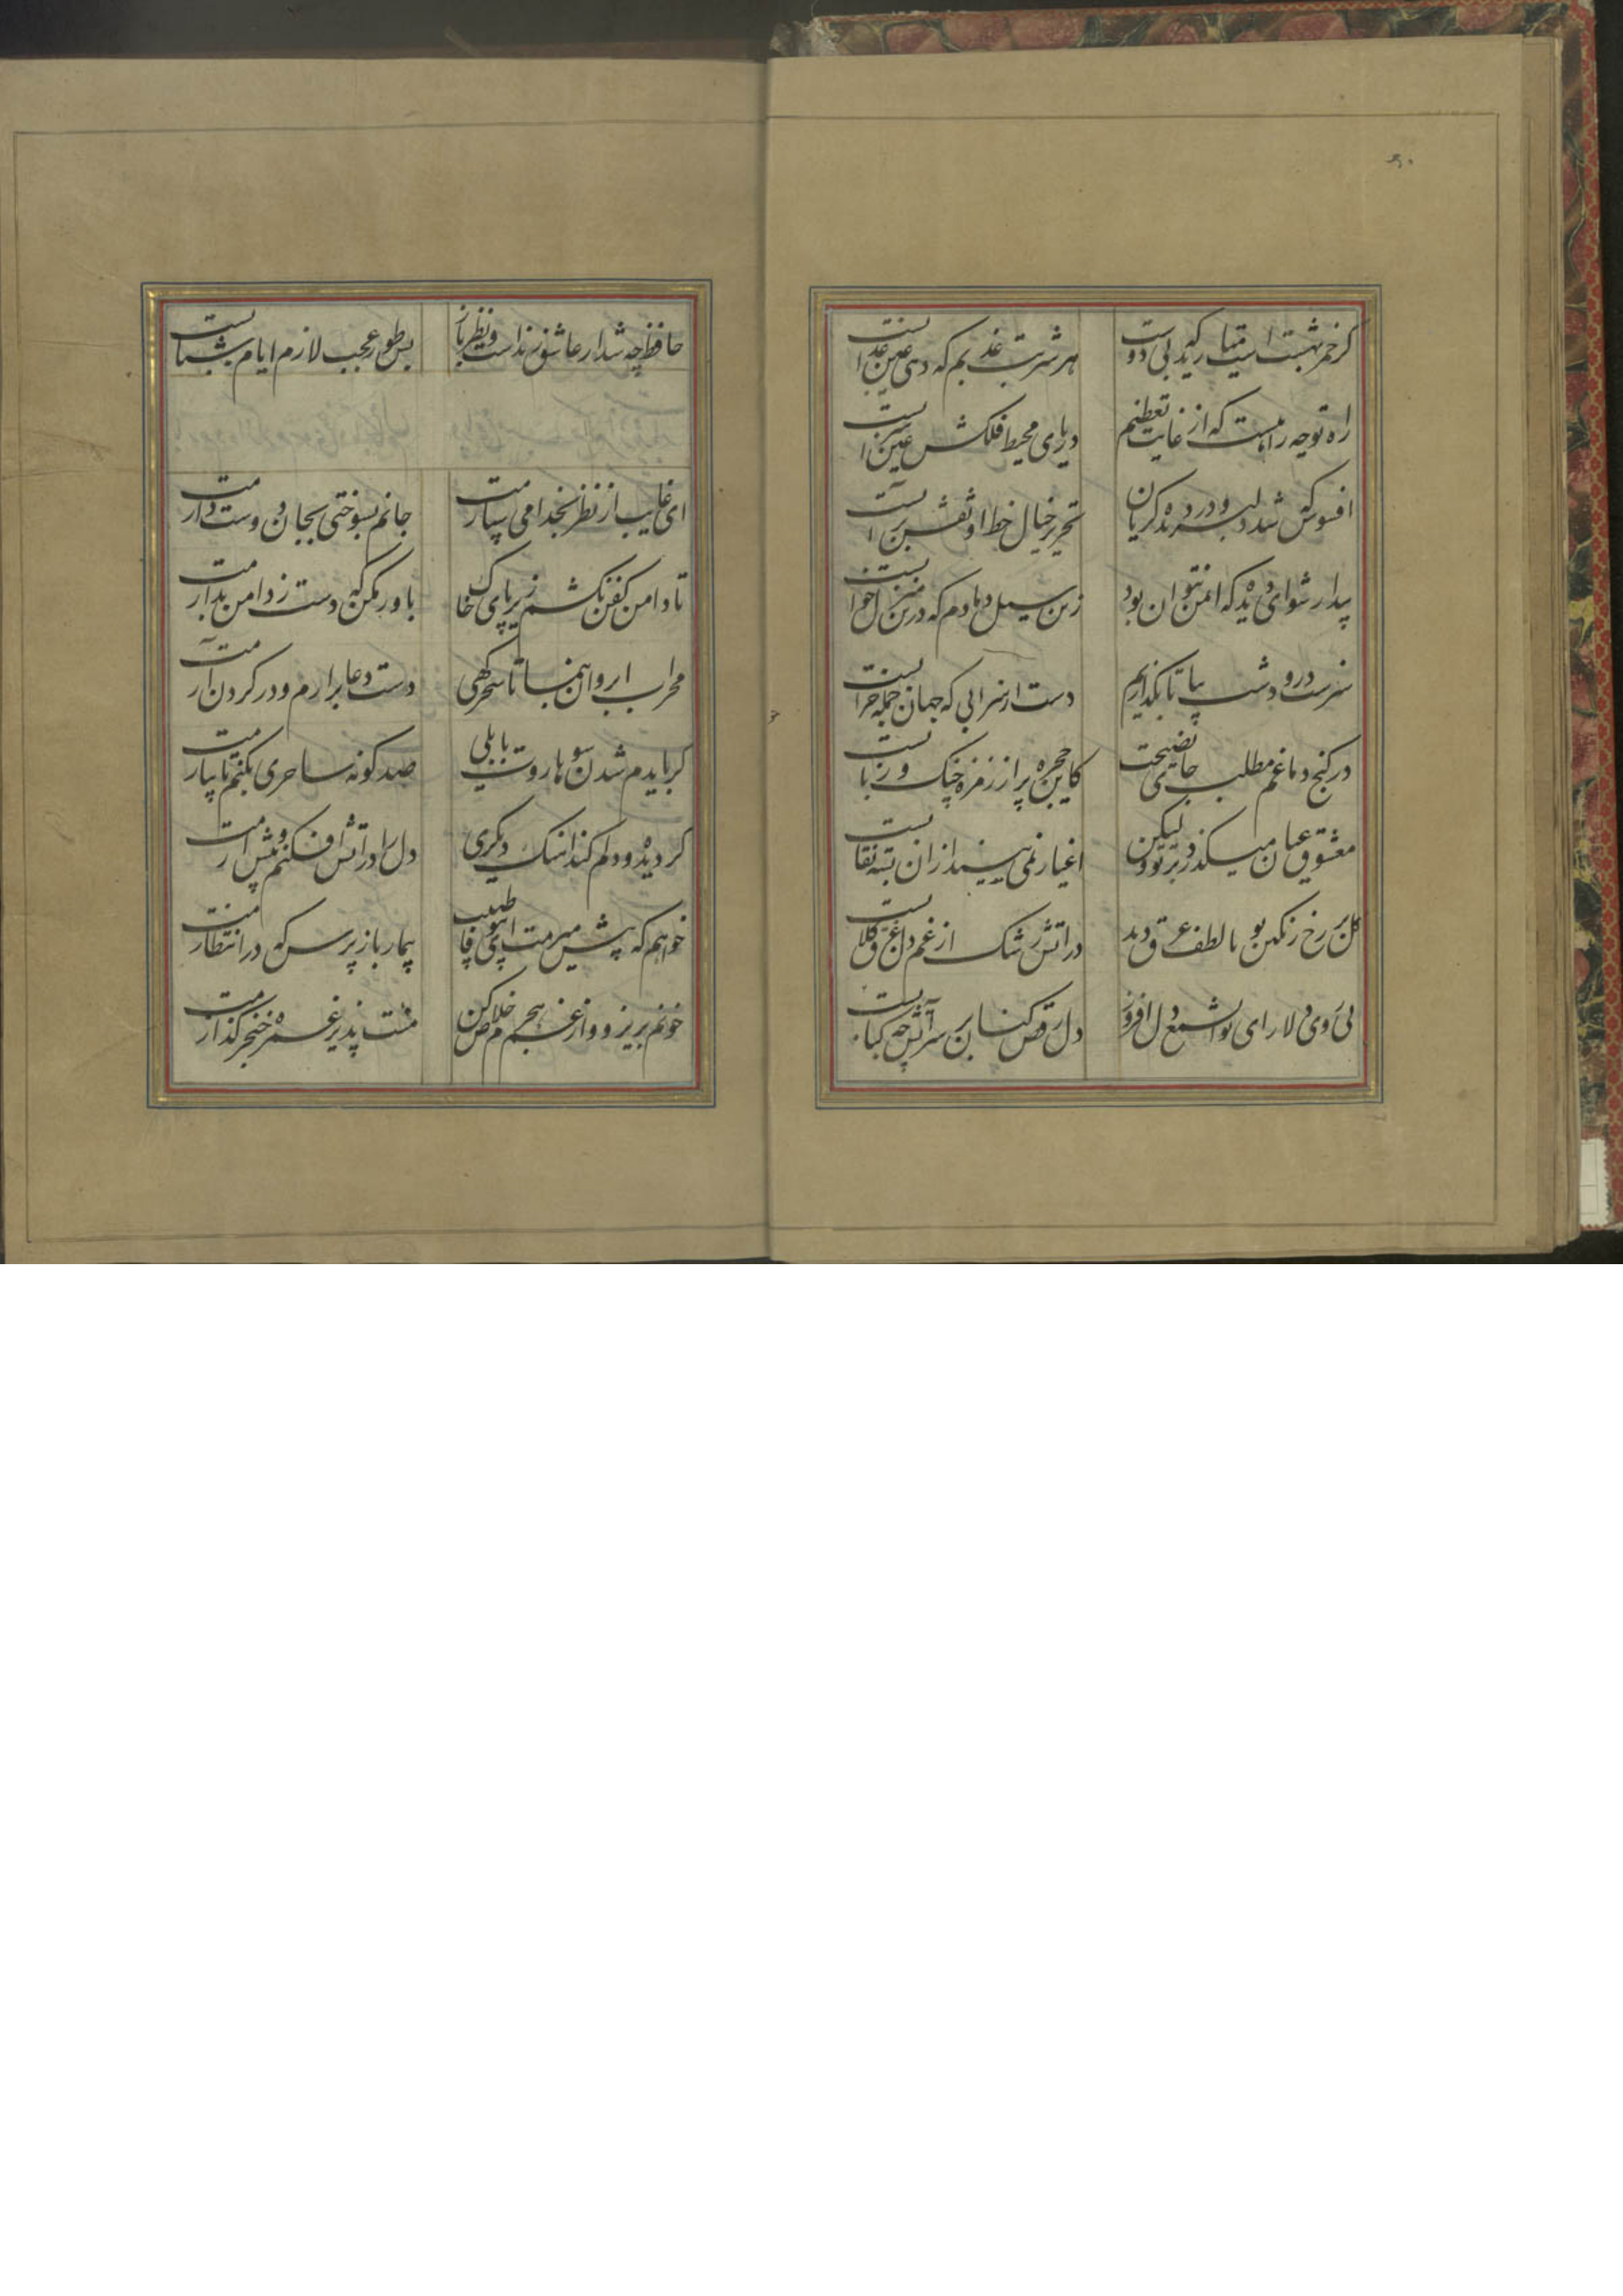 کر خمر بهشت است بریزید که بی دوست
هر شربت عذبم که دهی عین عذابست
راه تو چه راهیست که از غایت تعظیم
دریای محیط فلکش عین سرابست
افسوس که شد دلبر و در دیده کریان
تحریر خیال خط او نقش بر آبست
بیدار شو ای دیده که ایمن نتوان بود
زین سیل دمادم که درین منزل خوابست
سرسبز در و دشت بیا تا نگذاریم
دست از سر آبی که جهان جمله سرابست
در کنج دماغم مطلب جای نصیحت
کاین حجره پر از زمزمه چنک و ربابست
معشوق عیان میکذرد بر تو ولیکن
اغیار نمی بیند از آن بسته نقابست
کل بر رخ رنکین تو تا لطف عرق دید
در آتش رشک از غم دل غرق کلابست
بی روی دلارای تو ای شمع دل افروز
دل رقص کنان بر سر آتش چه کبابست
حافظ چه شد ار عاشق و رندست و نظرباز
بس طور عجب لازم ایام شبابست
ای غایب از نظر بخدا می سپارمت
جانم بسوختی و بجان دوست دارمت
تا دامن کفن نکشم زیر پای خاک
باور مکن که دست ز دامن بدارمت
محراب ابروان بنما تا سحرکهی
دست دعا برارم و در کردن آرمت
کر بایدم شدن سوی هاروت بابلی
صد کونه ساحری بکنم تا بیارمت
کر دیده و دلم کند آهنک دیکری
دل را در آتش افکنم و پیش آرمت
خواهم که پیش میرمت ای بی وفا طبیب
بیمار باز پرس که در انتظارمت
خونم بریز و از غم هجرم خلاص کن
منت پذیر غمزه خنجر کذارمت